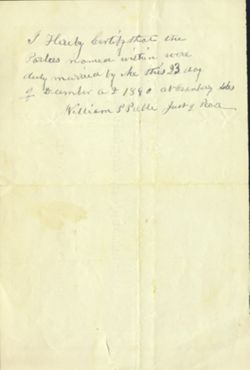 I Hereby Certify that the
Parties named within were
duly married by Me this 23 day
of December A D 1890 at
William S Just of Peace